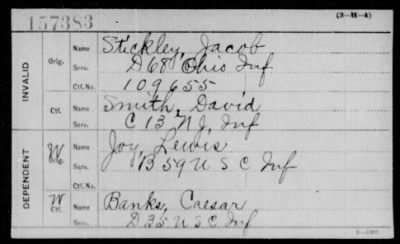 157383
(3-H-4)
INVALID
Orig. Name Stickley, Jacob
Serv. D 68 Ohio Inf
Ctf. No. 109655
Ctf. Name Smith, David
Serv. C 13 N J, Inf
DEPENDENT
W Orig. Name Joy, Lewis
Serv. B 59 U S C Inf
Ctf. No.
W Ctf. Name Banks, Caesar
Serv. D 35 U S C Inf